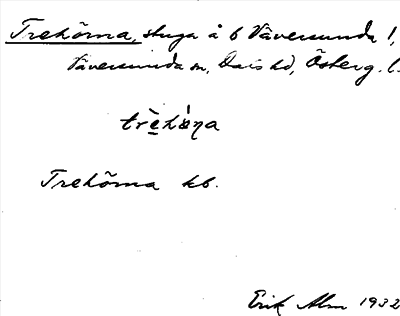 Trehörna, stuga å 6 Väversunda 1,
Väversunda sn, Dals hd, Österg. l.
trèhö̀ṇa
Trehörna kb.
Erik Alm 1932